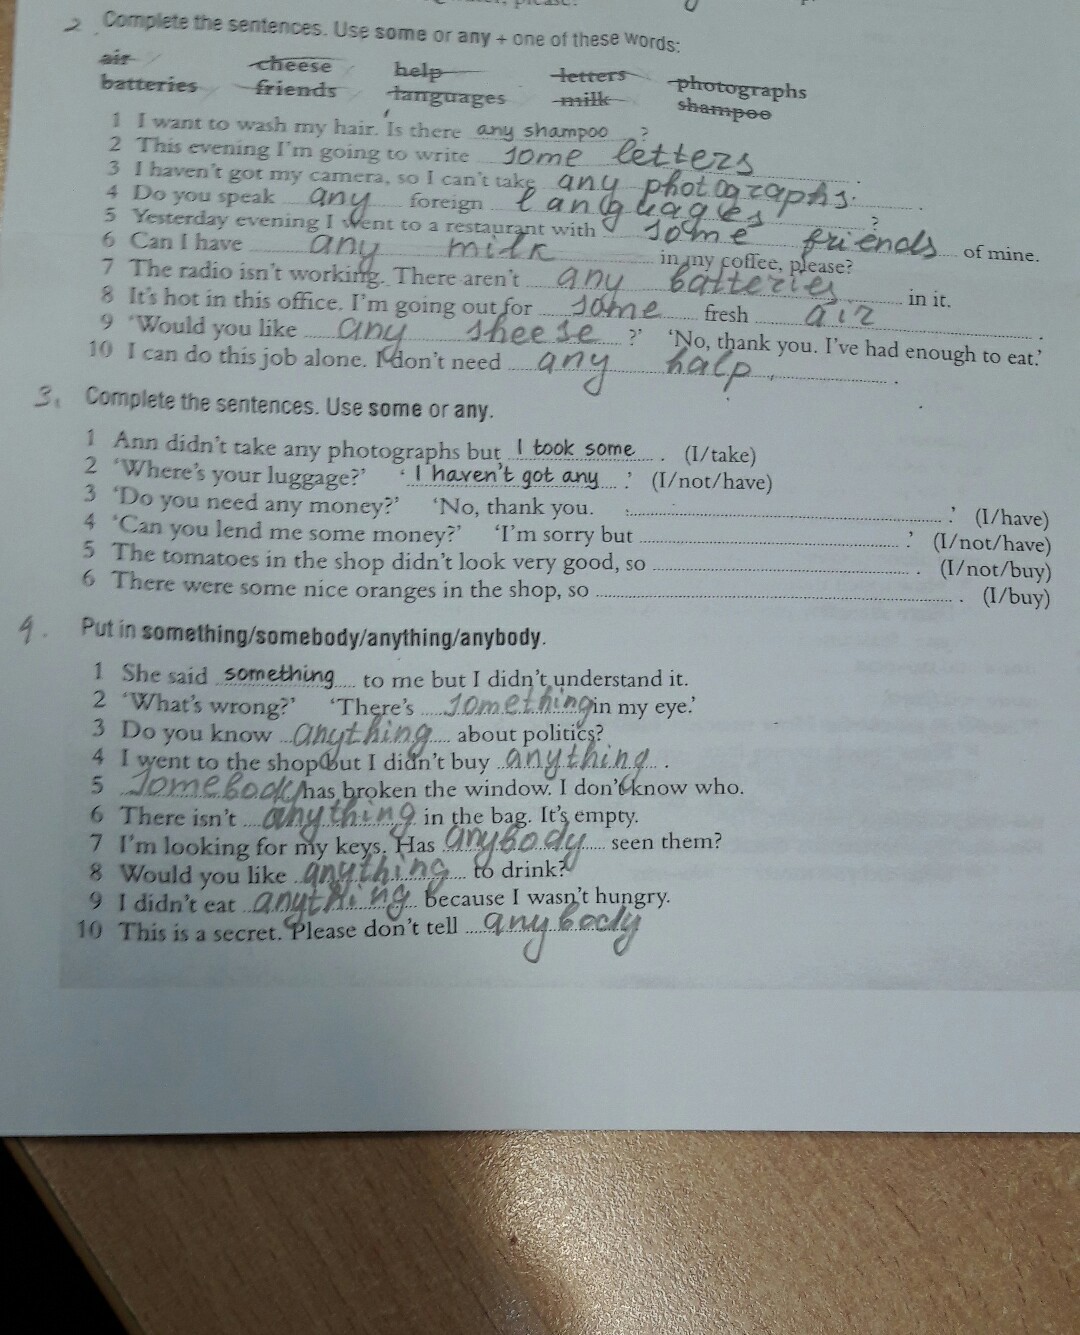 2. Complete the sentences. Use some or any + one of these words:
air cheese help letters photographs
batteries friends languages milk shampoo
1 I want to wash my hair. Is there any shampoo ?
2 This evening I'm going to write some letters .
3 I haven't got my camera, so I can't take any photographs. .
4 Do you speak any foreign languages ?
5 Yesterday evening I went to a restaurant with some friends of mine.
6 Can I have any milk in my coffee, please?
7 The radio isn't working. There aren't any batteries in it.
8 It's hot in this office. I'm going out for some fresh air .
9 'Would you like any sheese ?' 'No, thank you. I've had enough to eat.'
10 I can do this job alone. I don't need any halp .
3. Complete the sentences. Use some or any.
1 Ann didn't take any photographs but I took some . (I/take)
2 'Where's your luggage?' 'I haven't got any .' (I/not/have)
3 'Do you need any money?' 'No, thank you. .' (I/have)
4 'Can you lend me some money?' 'I'm sorry but .' (I/not/have)
5 The tomatoes in the shop didn't look very good, so . (I/not/buy)
6 There were some nice oranges in the shop, so . (I/buy)
4. Put in something/somebody/anything/anybody.
1 She said something to me but I didn't understand it.
2 'What's wrong?' 'There's something in my eye.'
3 Do you know anything about politics?
4 I went to the shop but I didn't buy anything .
5 Somebody has broken the window. I don't know who.
6 There isn't anything in the bag. It's empty.
7 I'm looking for my keys. Has anybody seen them?
8 Would you like anything to drink?
9 I didn't eat anything because I wasn't hungry.
10 This is a secret. Please don't tell anybody